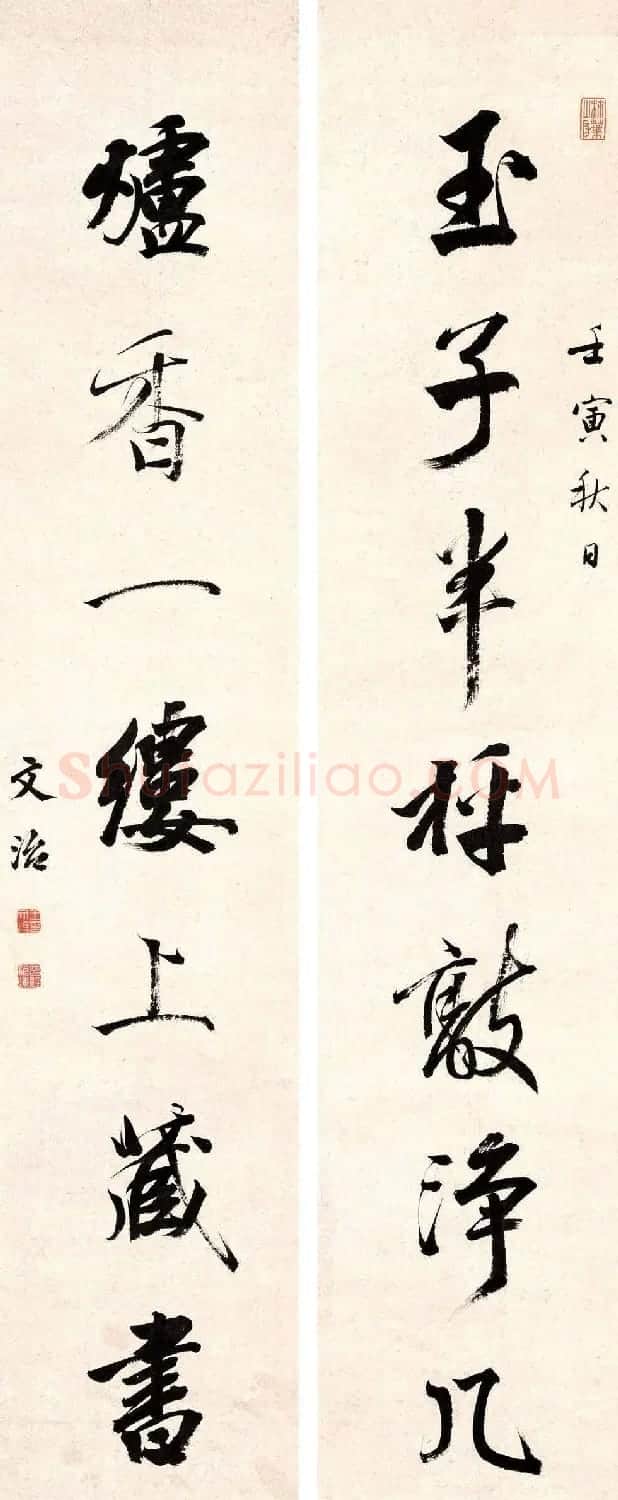 壬寅秋日
玉子半枰敲淨几
爐香一縷上藏書
文治
Shufaziliao.COM